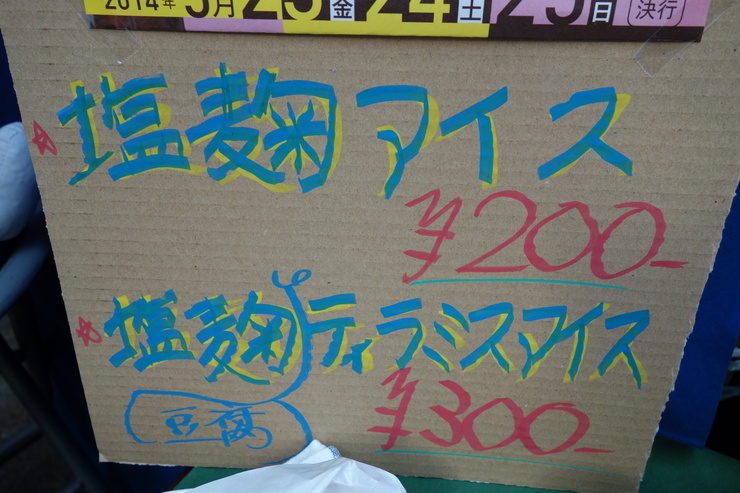 2014年 5月23金24土25日 決行
塩麹アイス
¥200-
塩麹ティラミスアイス
豆腐
¥300-